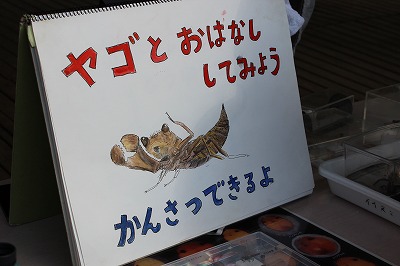 ヤゴと おはなし
してみよう
かんさつできるよ